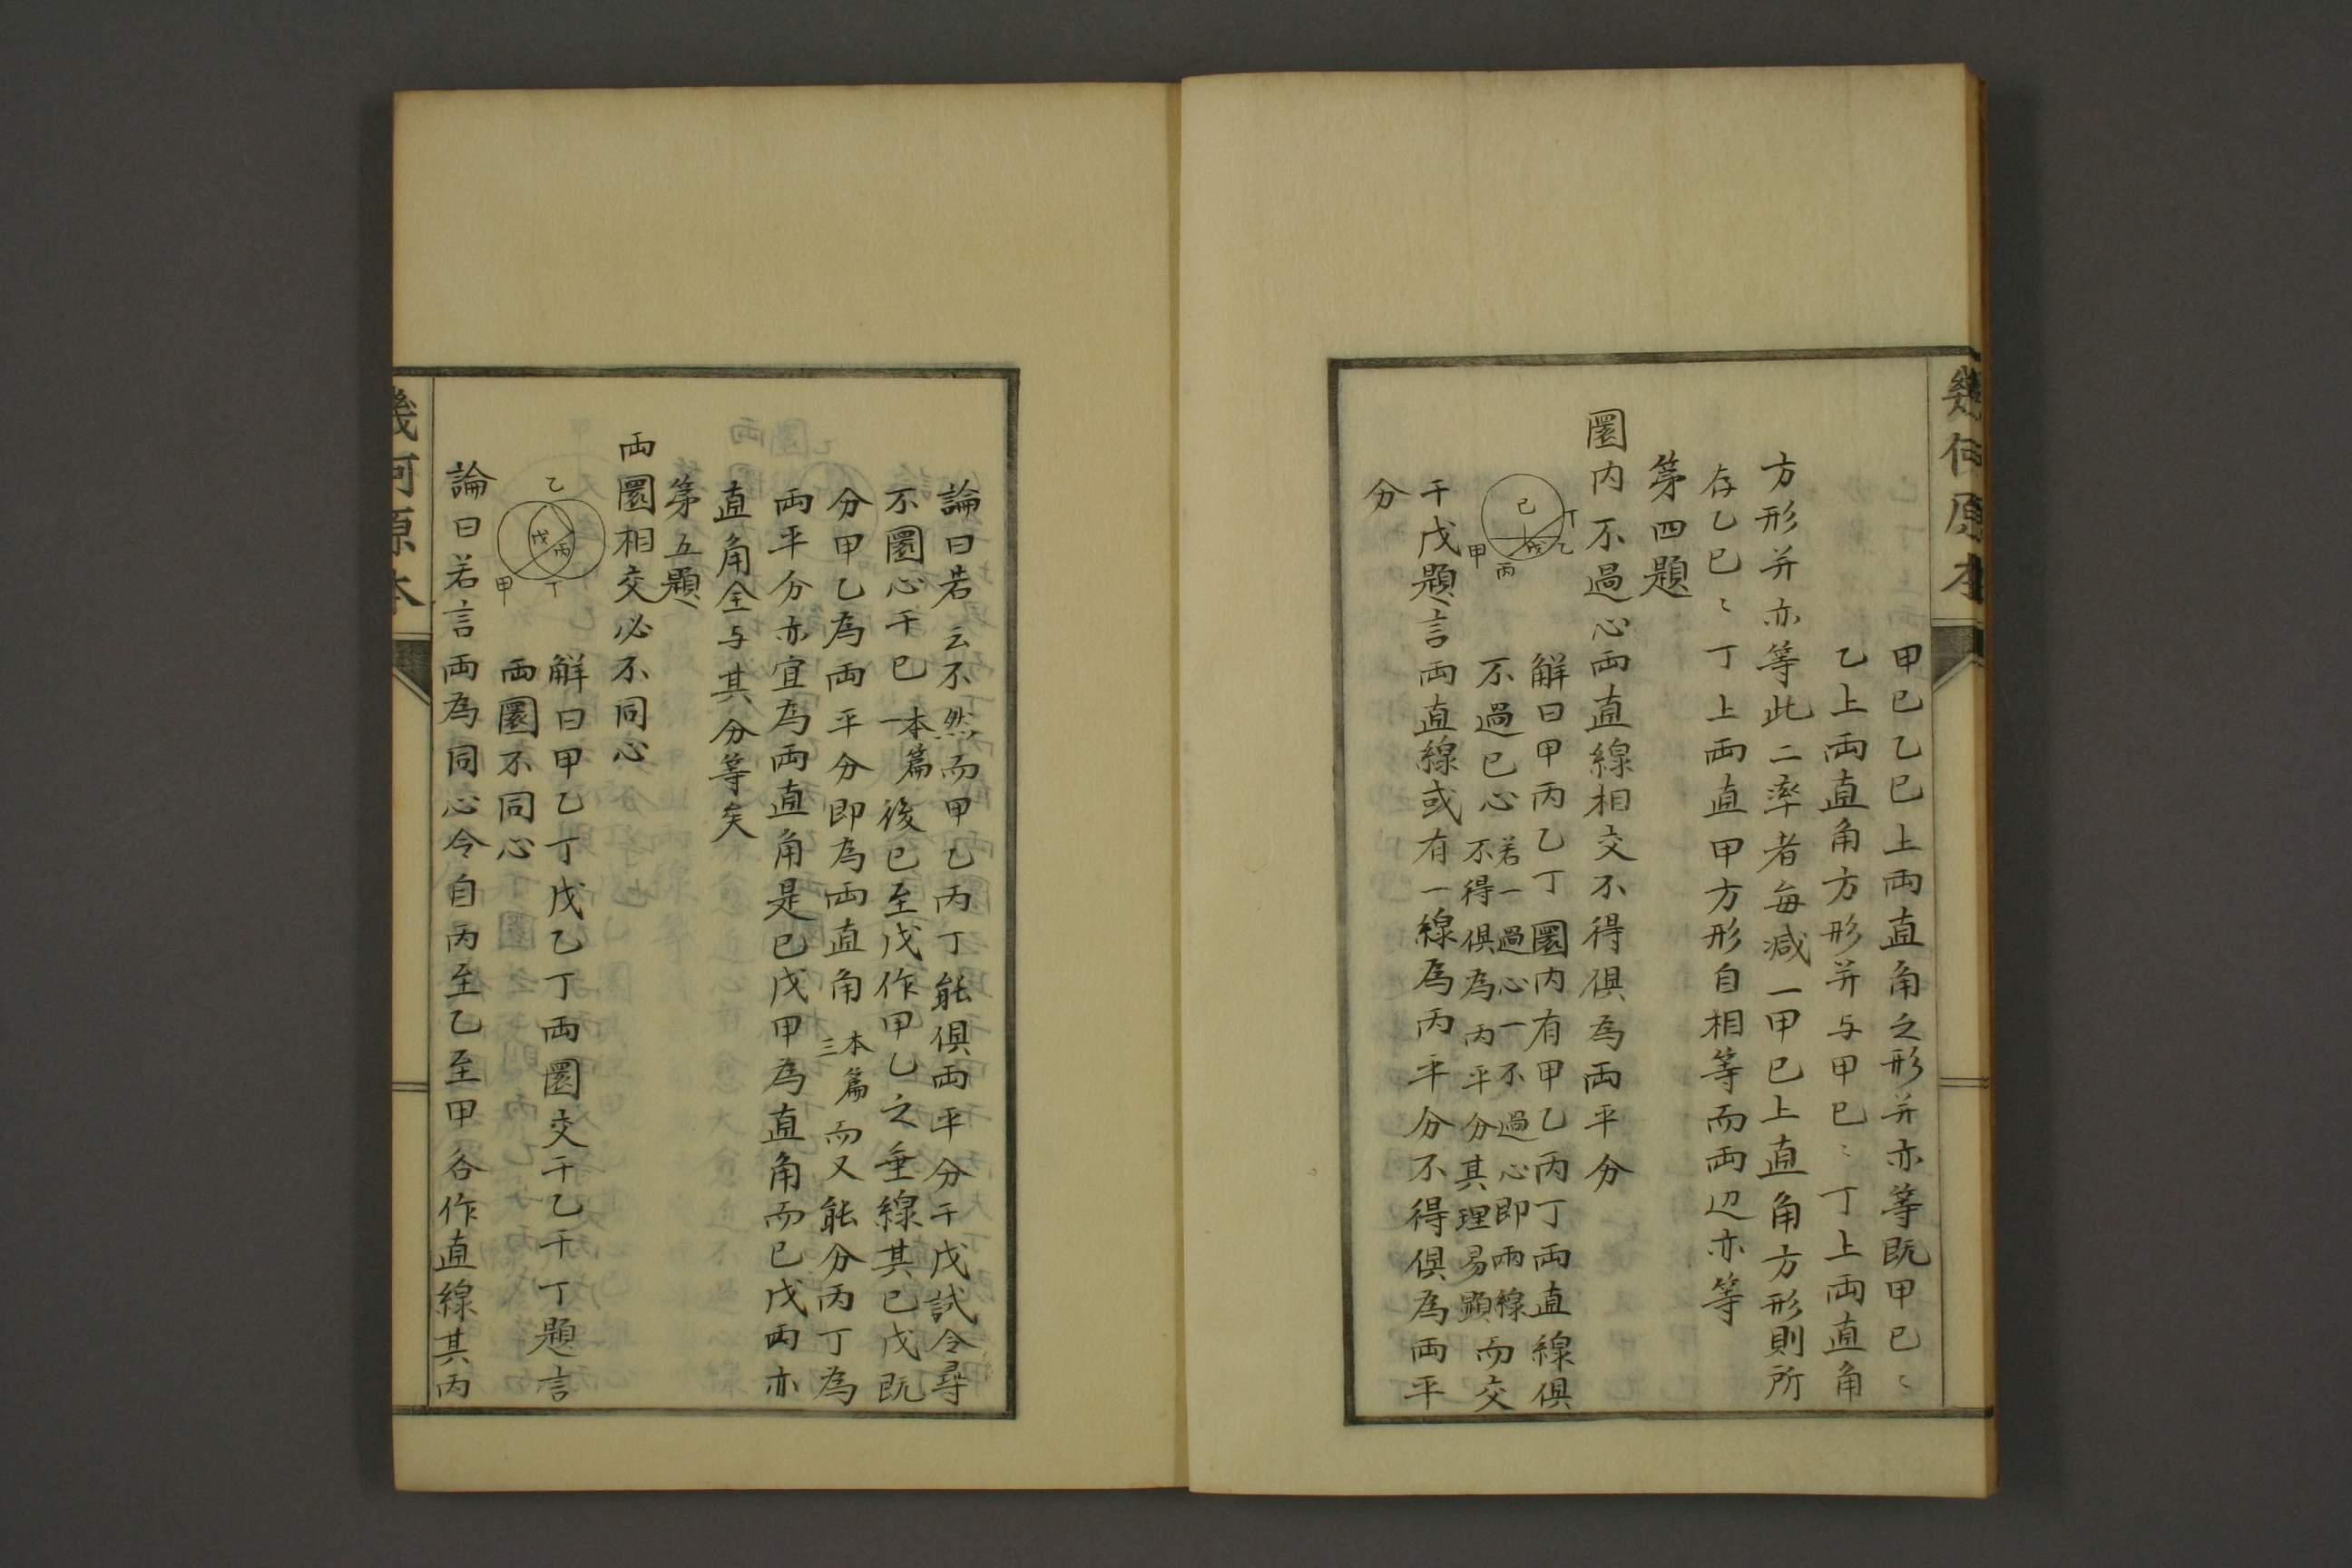 幾何原本
甲巳乙巳上兩直角之形并亦等既甲巳〻
乙上兩直角方形并与甲巳〻丁上兩直角
方形并亦等此二率者每减一甲巳上直角方形則所
存乙巳〻丁上兩直甲方形自相等而兩辺亦等
第四題
圜内不過心兩直線相交不得俱為兩平分
解曰甲丙乙丁圜内有甲乙丙丁兩直線俱
不過巳心
若一過心一不過心即兩線
不得俱為丙平分其理易顯
而交
于戊題言兩直線或有一線為丙平分不得俱為兩平
分
巳
丁
戊
乙
甲
丙
論曰若云不然而甲乙丙丁能俱兩平分于戊試令尋
不圜心于巳
本篇
一
後巳至戊作甲乙之垂線其巳戊既
分甲乙為兩平分即為兩直角
本篇
三
而又能分丙丁為
兩平分亦宜為兩直角是巳戊甲為直角而巳戊丙亦
直角全与其分等矣
第五題
兩圜相交必不同心
解曰甲乙丁戊乙丁兩圜交于乙于丁題言
兩圜不同心
乙
戊
丙
甲
丁
論曰若言兩為同心令自丙至乙至甲各作直線其丙
幾何原本